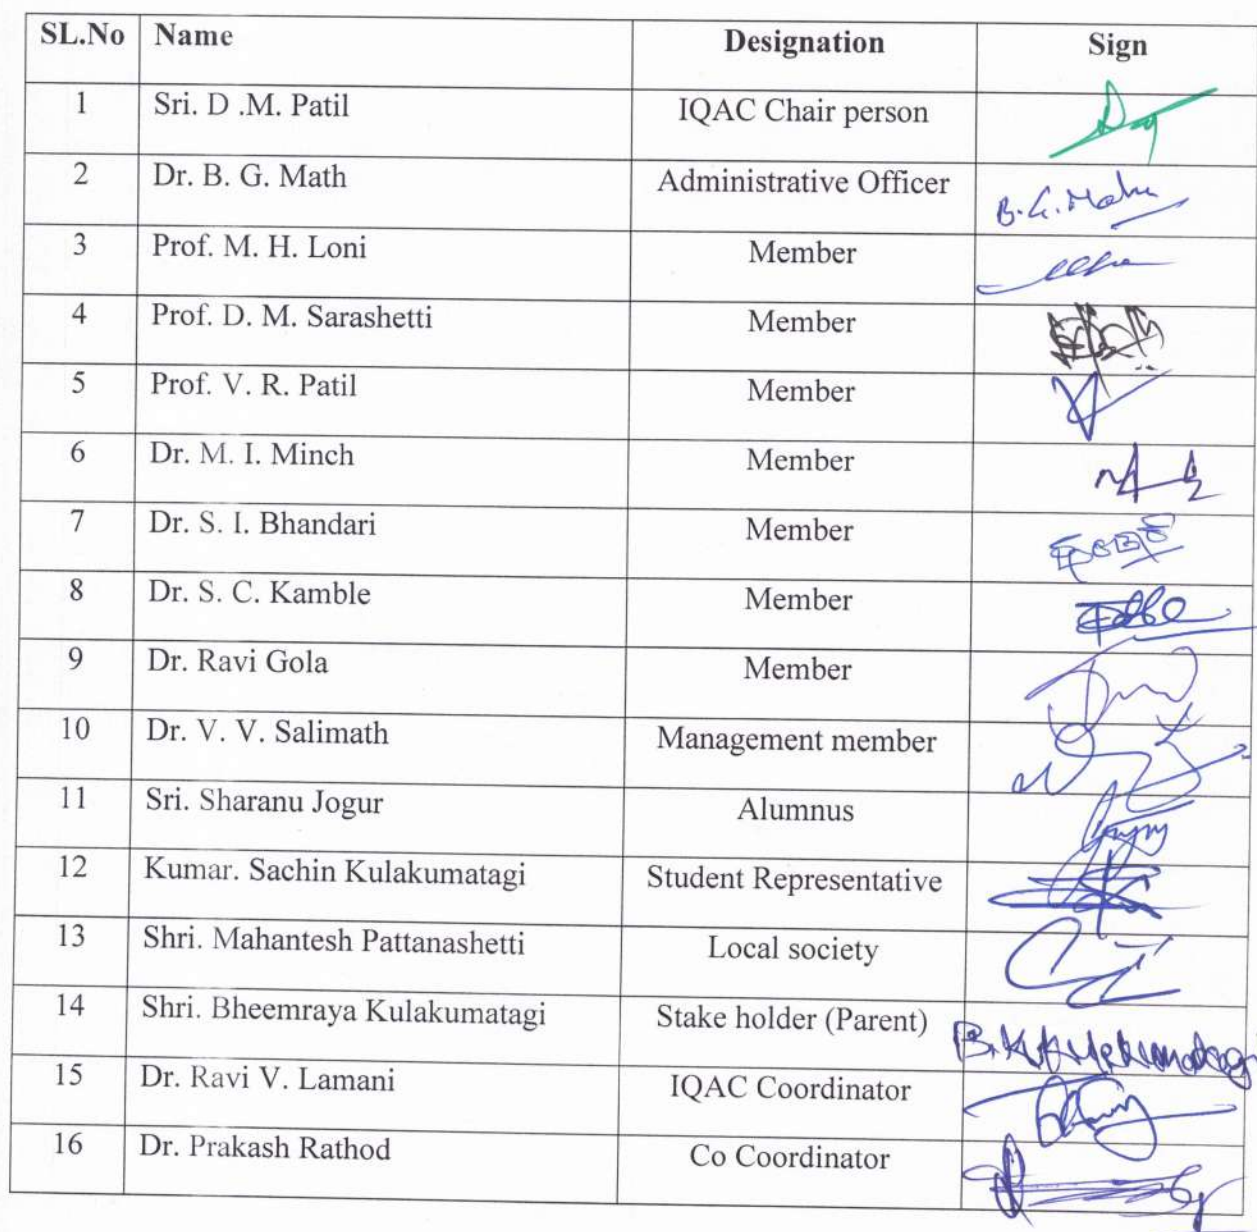 SL.No Name Designation Sign
1 Sri. D .M. Patil IQAC Chair person
2 Dr. B. G. Math Administrative Officer B.G.Math
3 Prof. M. H. Loni Member
4 Prof. D. M. Sarashetti Member
5 Prof. V. R. Patil Member
6 Dr. M. I. Minch Member
7 Dr. S. I. Bhandari Member
8 Dr. S. C. Kamble Member
9 Dr. Ravi Gola Member
10 Dr. V. V. Salimath Management member
11 Sri. Sharanu Jogur Alumnus
12 Kumar. Sachin Kulakumatagi Student Representative
13 Shri. Mahantesh Pattanashetti Local society
14 Shri. Bheemraya Kulakumatagi Stake holder (Parent)
15 Dr. Ravi V. Lamani IQAC Coordinator
16 Dr. Prakash Rathod Co Coordinator